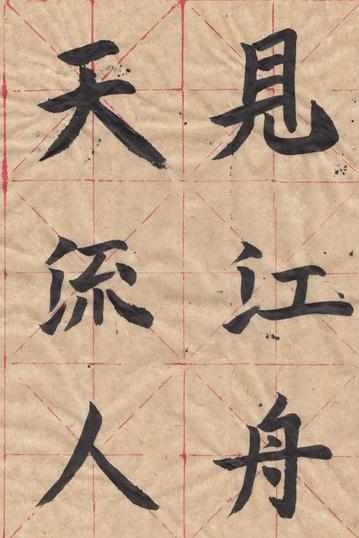 見江舟
天流人